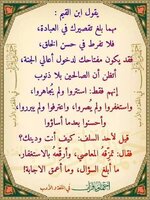 يقول ابن القيم :
مهما بلغ تقصيرك في العبادة،
فلا تفرط في حسن الخلق،
فقد يكون مفتاحك لدخول أعالي الجنة،
أتظن أن الصالحين بلا ذنوب
إنهم فقط: استتروا ولم يُجاهروا،
واستغفروا ولم يُصروا، واعترفوا ولم يبرروا،
وأحسنوا بعدما أساؤوا
قيل لأحد السلف: كيف أنت ودينك؟
فقال: تمزقه المعاصي، وأرقعه بالاستغفار.
ما أبلغ السؤال، وما أعمق الاجابة!